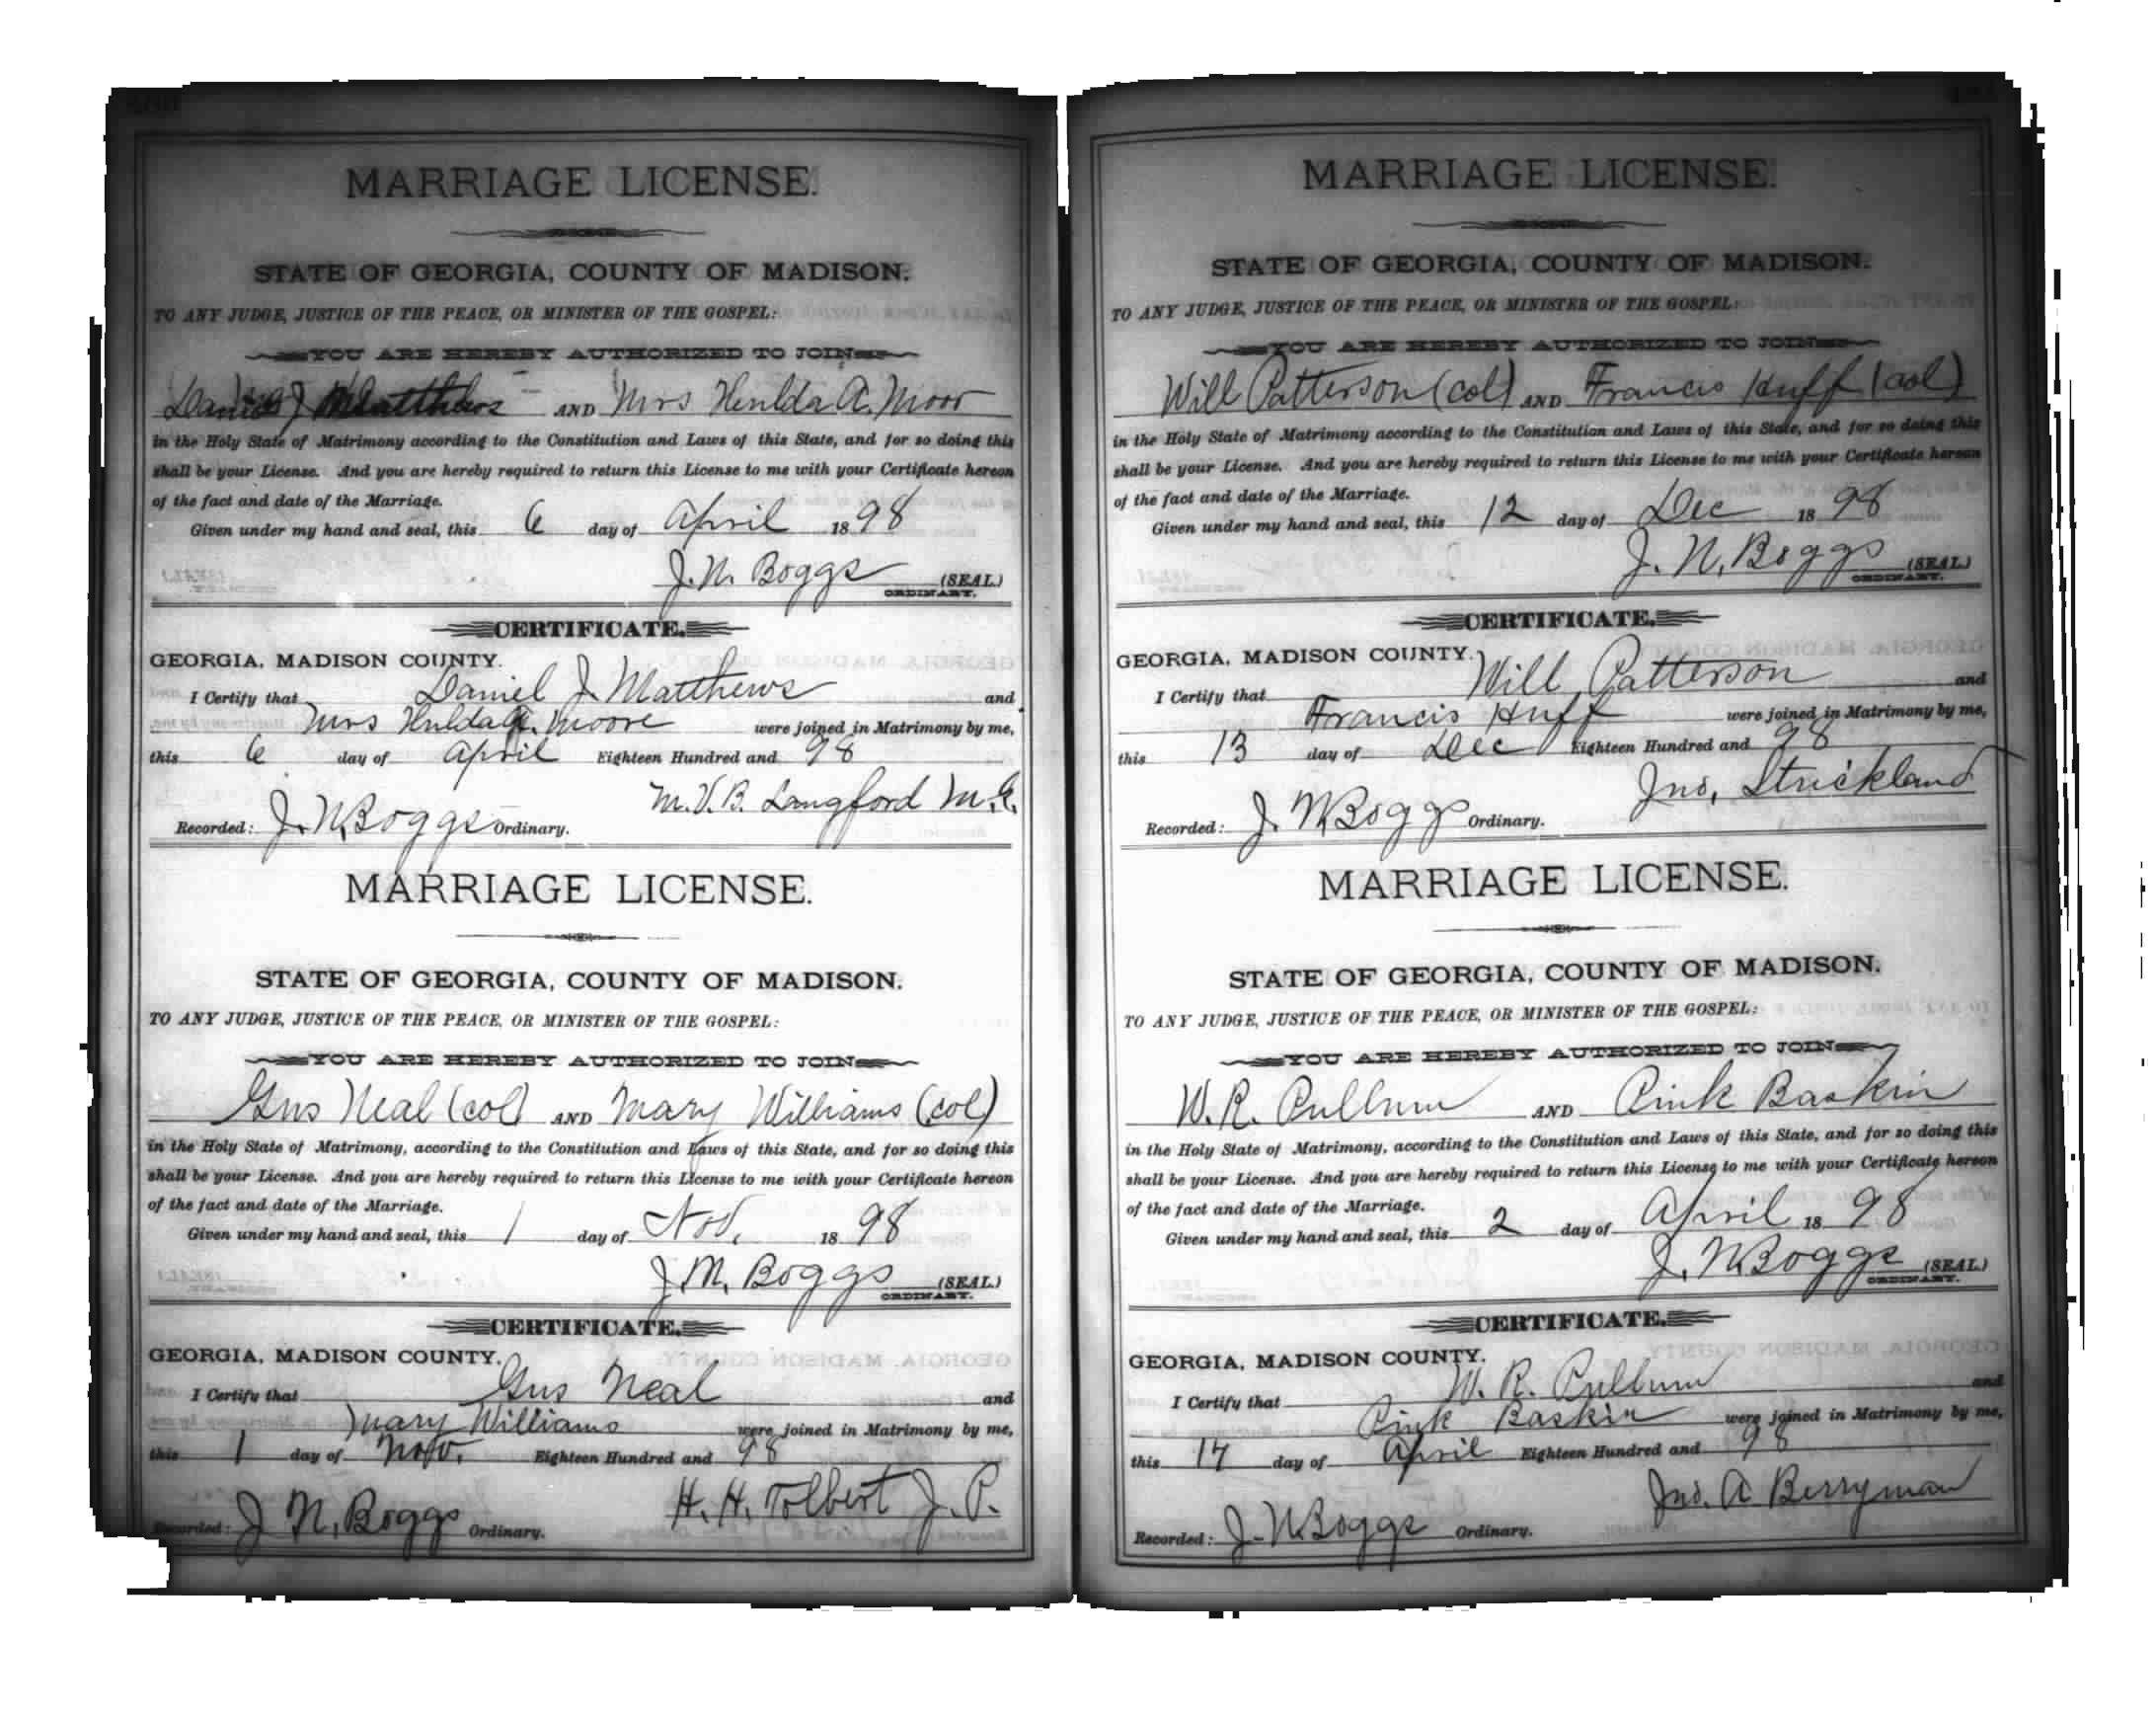 MARRIAGE LICENSE.
STATE OF GEORGIA, COUNTY OF MADISON.
TO ANY JUDGE, JUSTICE OF THE PEACE, OR MINISTER OF THE GOSPEL:
YOU ARE HEREBY AUTHORIZED TO JOIN
Daniel J Matthews AND Mrs Hulda A. Moor
in the Holy State of Matrimony according to the Constitution and Laws of this State, and for so doing this
shall be your License. And you are hereby required to return this License to me with your Certificate hereon
of the fact and date of the Marriage.
Given under my hand and seal, this 6 day of April 1898
J. N. Boggs (SEAL)
ORDINARY.
CERTIFICATE.
GEORGIA, MADISON COUNTY.
I Certify that Daniel J. Matthews and
Mrs Hulda A. Moore were joined in Matrimony by me,
this 6 day of April Eighteen Hundred and 98
M. V. B. Langford M.G.
Recorded: J. N. Boggs Ordinary.
MARRIAGE LICENSE.
STATE OF GEORGIA, COUNTY OF MADISON.
TO ANY JUDGE, JUSTICE OF THE PEACE, OR MINISTER OF THE GOSPEL:
YOU ARE HEREBY AUTHORIZED TO JOIN
Gus Neal (col) AND Mary Williams (col)
in the Holy State of Matrimony, according to the Constitution and Laws of this State, and for so doing this
shall be your License. And you are hereby required to return this License to me with your Certificate hereon
of the fact and date of the Marriage.
Given under my hand and seal, this 1 day of Nov, 1898
J. N. Boggs (SEAL)
ORDINARY.
CERTIFICATE.
GEORGIA, MADISON COUNTY.
I Certify that Gus Neal and
Mary Williams were joined in Matrimony by me,
this 1 day of Nov. Eighteen Hundred and 98
H. H. Tolbert J. P.
Recorded: J. N. Boggs Ordinary.
MARRIAGE LICENSE.
STATE OF GEORGIA, COUNTY OF MADISON.
TO ANY JUDGE, JUSTICE OF THE PEACE, OR MINISTER OF THE GOSPEL:
YOU ARE HEREBY AUTHORIZED TO JOIN
Will Patterson (col) AND Francis Huff (col)
in the Holy State of Matrimony according to the Constitution and Laws of this State, and for so doing this
shall be your License. And you are hereby required to return this License to me with your Certificate hereon
of the fact and date of the Marriage.
Given under my hand and seal, this 12 day of Dec 1898
J. N. Boggs (SEAL)
ORDINARY.
CERTIFICATE.
GEORGIA, MADISON COUNTY.
I Certify that Will Patterson and
Francis Huff were joined in Matrimony by me,
this 13 day of Dec Eighteen Hundred and 98
Jno, Strickland
Recorded: J. N. Boggs Ordinary.
MARRIAGE LICENSE.
STATE OF GEORGIA, COUNTY OF MADISON.
TO ANY JUDGE, JUSTICE OF THE PEACE, OR MINISTER OF THE GOSPEL:
YOU ARE HEREBY AUTHORIZED TO JOIN
W. R. Pullum AND Pink Baskin
in the Holy State of Matrimony, according to the Constitution and Laws of this State, and for so doing this
shall be your License. And you are hereby required to return this License to me with your Certificate hereon
of the fact and date of the Marriage.
Given under my hand and seal, this 2 day of April 1898
J. N. Boggs (SEAL)
ORDINARY.
CERTIFICATE.
GEORGIA, MADISON COUNTY.
I Certify that W. R. Pullum and
Pink Baskin were joined in Matrimony by me,
this 17 day of April Eighteen Hundred and 98
Jno. A Berryman
Recorded: J. N. Boggs Ordinary.